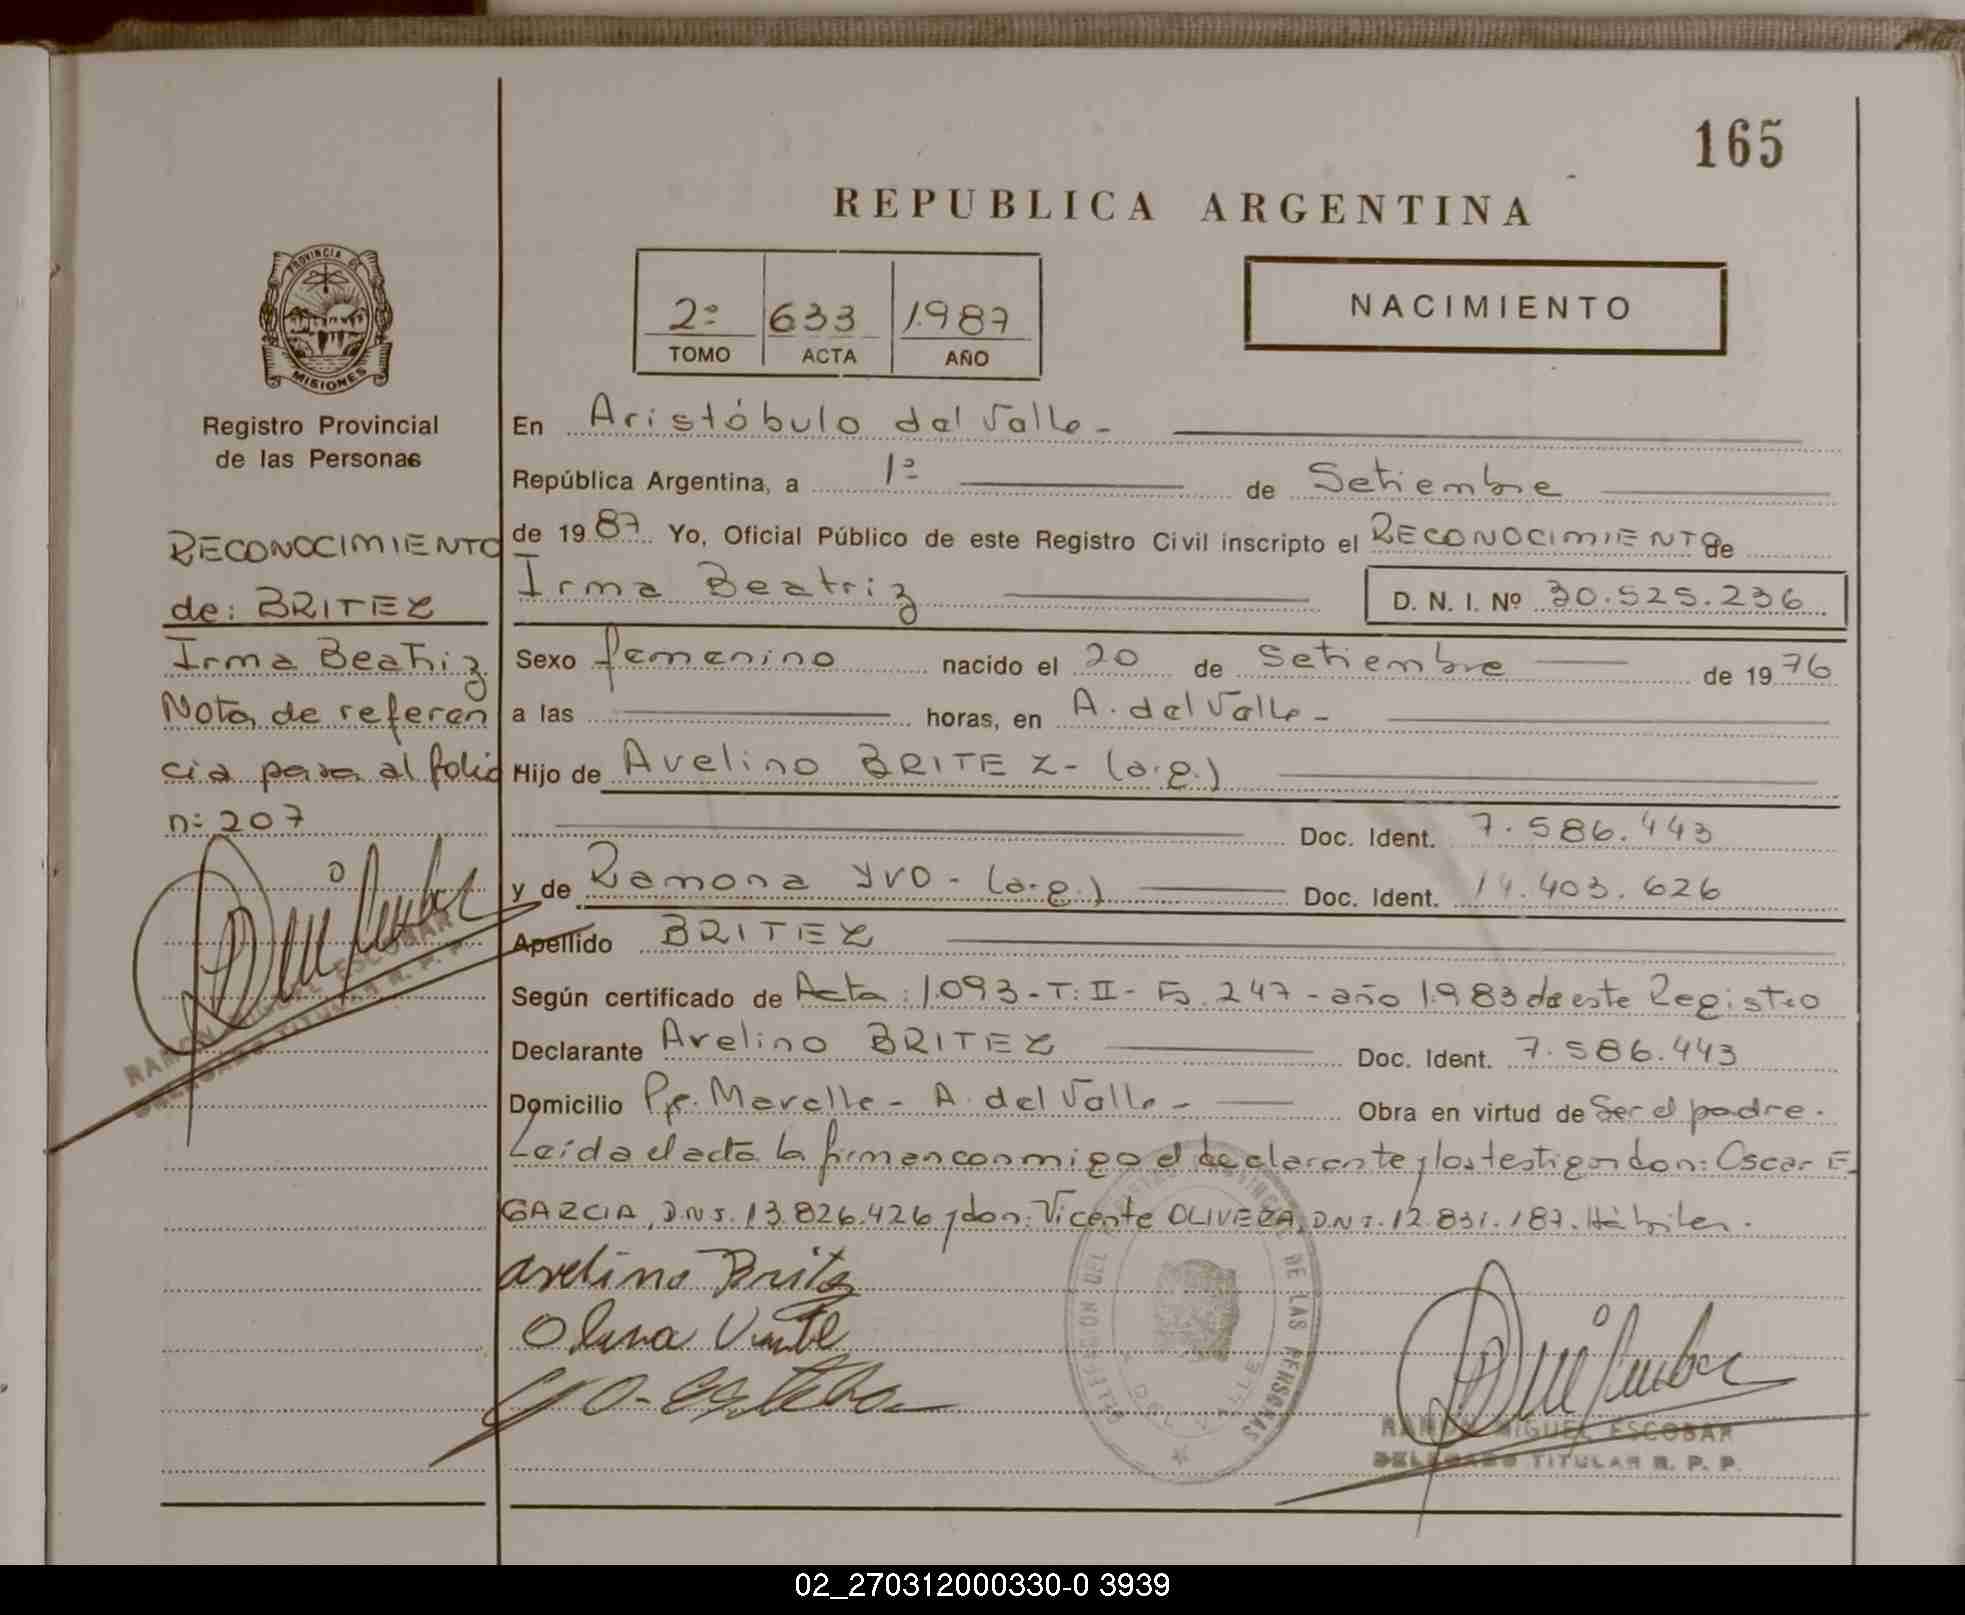 165
REPUBLICA ARGENTINA
2º 633 1.987
TOMO ACTA AÑO
NACIMIENTO
PROVINCIA DE
MISIONES
Registro Provincial
de las Personas
RECONOCIMIENTO
de: BRITEZ
Irma Beatriz
Nota de referen
cia pasa al folio
nº 207
RAMON MIGUEL ESCOBAR
DELEGADO TITULAR R. P. P.
En Aristóbulo del Valle -
República Argentina, a 1º de Setiembre
de 1987 Yo, Oficial Público de este Registro Civil inscripto el RECONOCIMIENTO de
Irma Beatriz D. N. I. Nº 30.525.236
Sexo femenino nacido el 20 de Setiembre de 1976
a las horas, en A. del Valle -
Hijo de Avelino BRITEZ - (a.g.)
Doc. Ident. 7.586.443
y de Ramona YVO - (a.g.) Doc. Ident. 14.403.626
Apellido BRITEZ
Según certificado de Acta: 1.093 - T: II - Fº. 247 - año 1.983 de este Registro
Declarante Avelino BRITEZ Doc. Ident. 7.586.443
Domicilio Pje. Mavalle - A. del Valle - Obra en virtud de Ser el padre.
Leída el acta la firman conmigo el declarante y los testigos don: Oscar E.
GARCIA, D.N.I. 13.826.426 y don: Vicente OLIVERA, D.N.I. 12.831.187. Hábiles.
Avelino Britez
DELEGACION DEL PROVINCIAL DE LAS PERSONAS
A. DEL VALLE
RAMON MIGUEL ESCOBAR
DELEGADO TITULAR R. P. P.
02_270312000330-0 3939